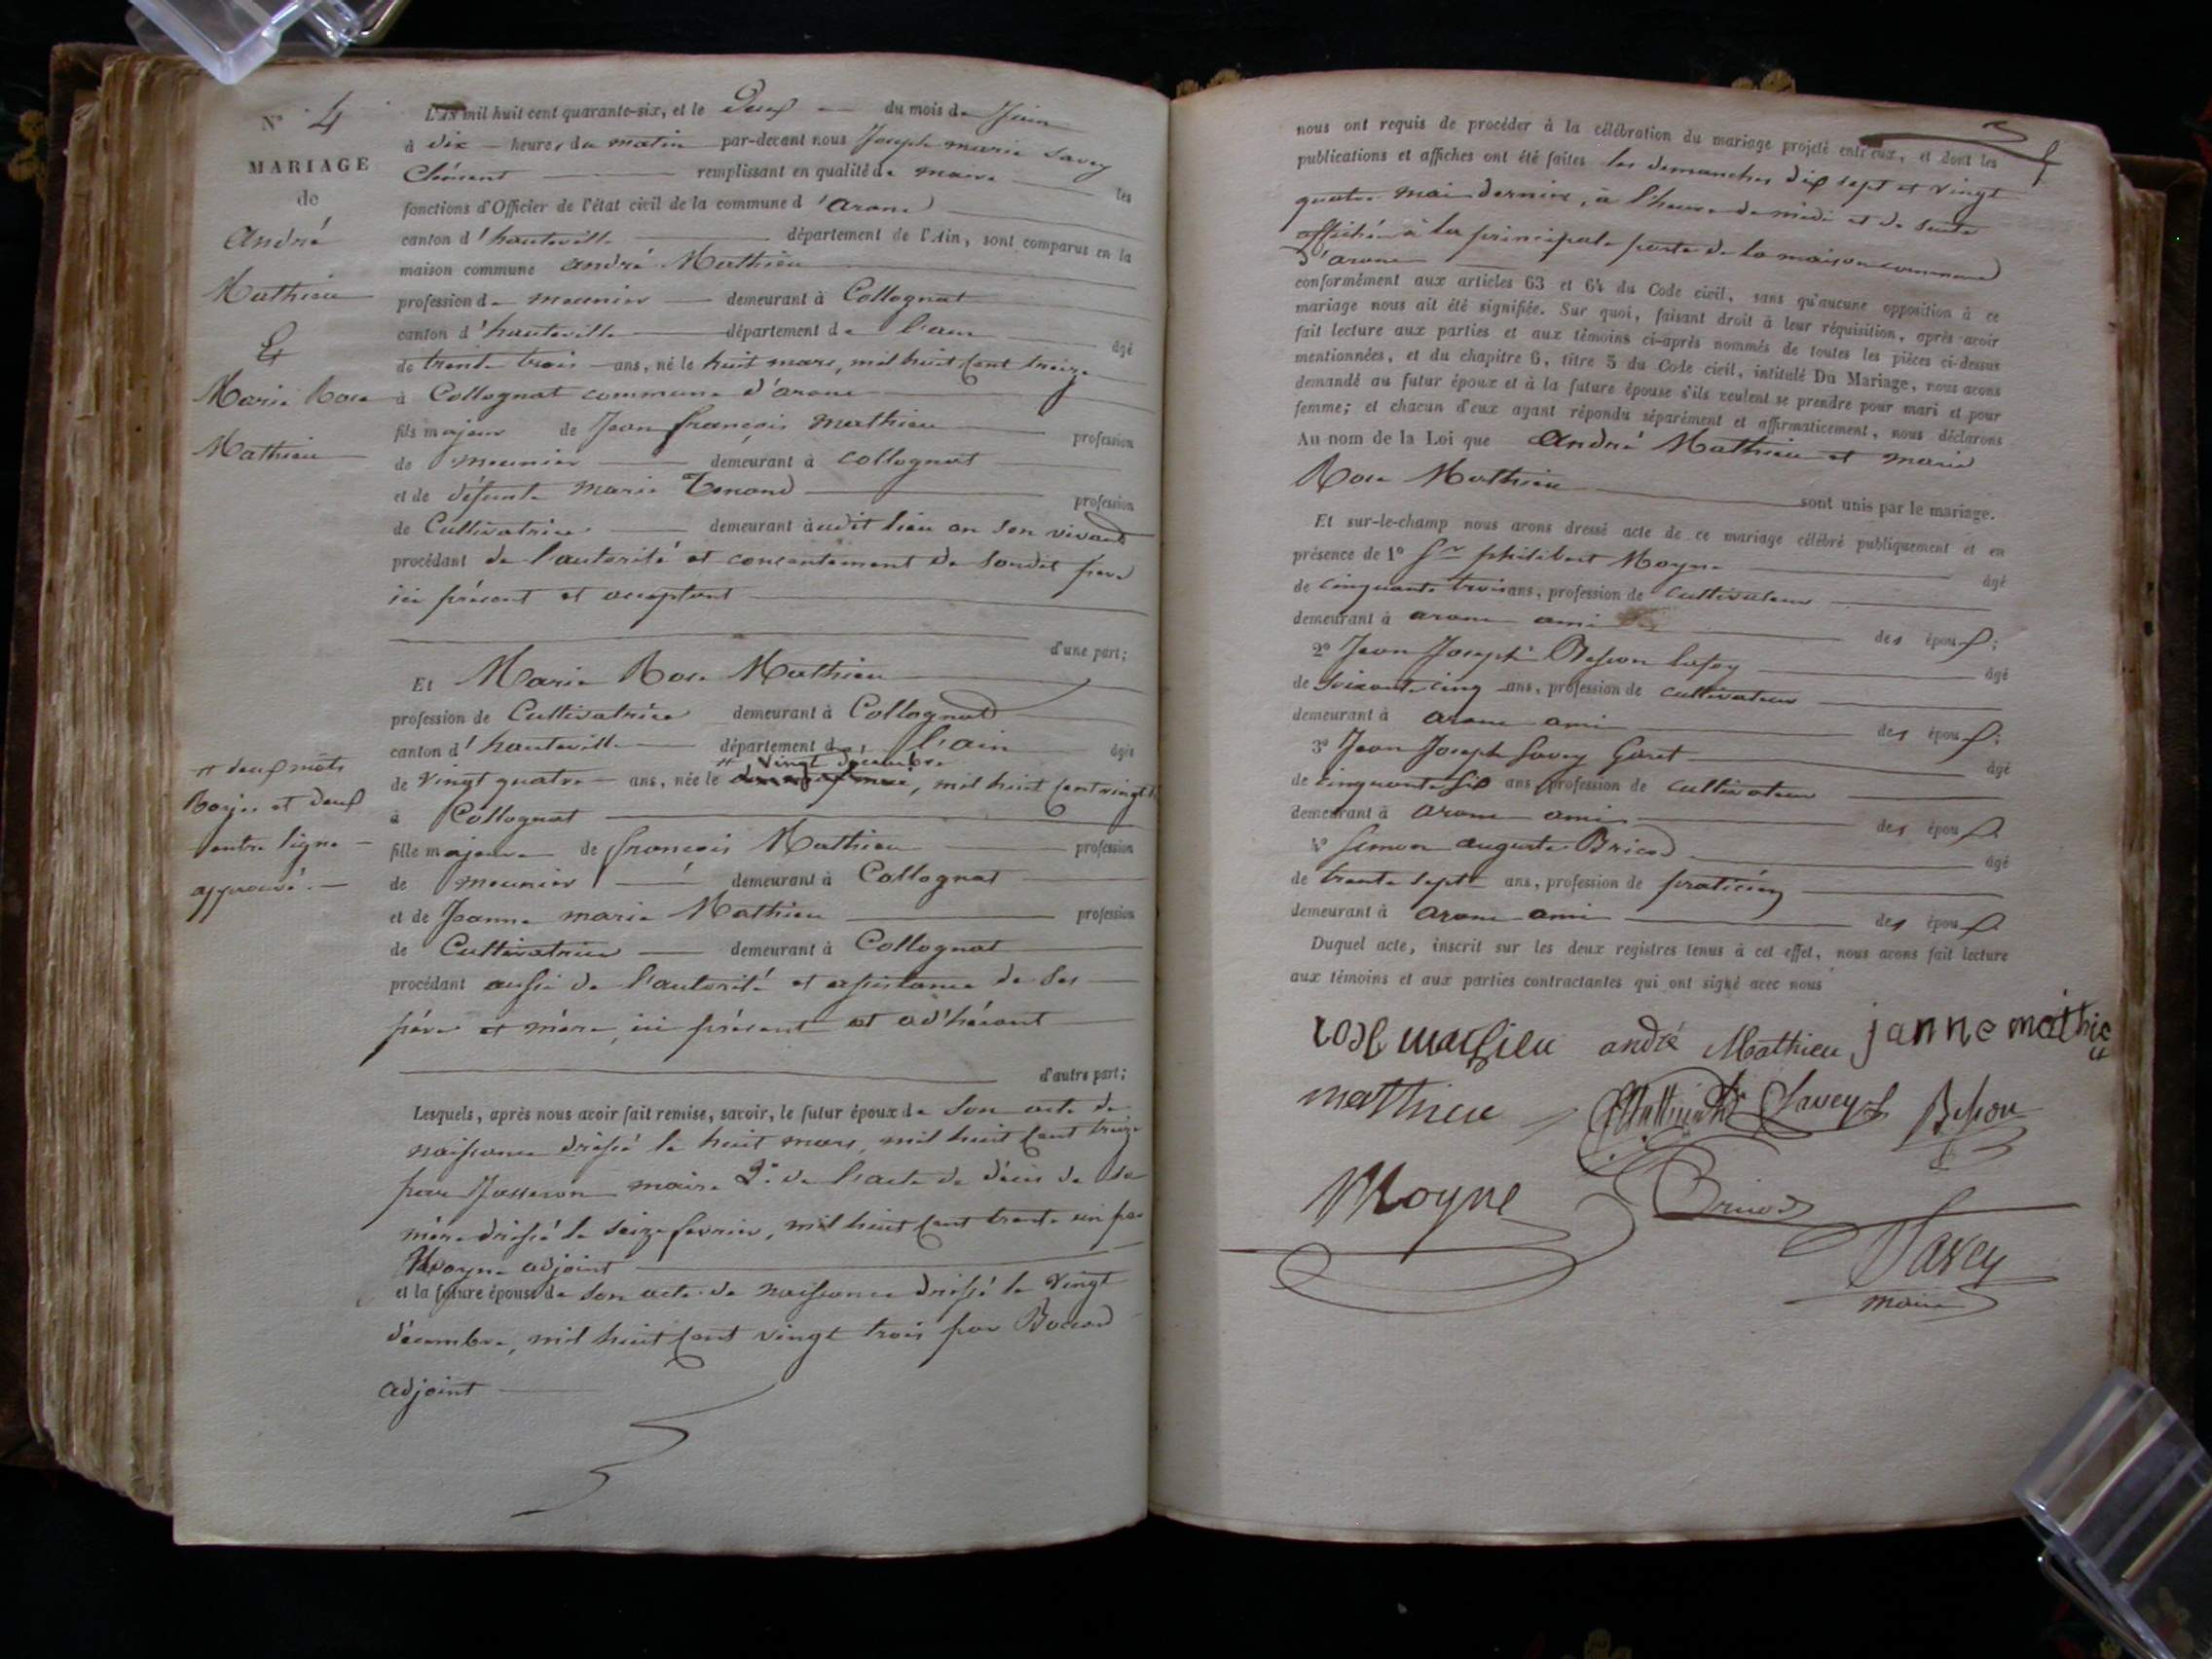 N° 4
MARIAGE
de
André
Mathieu
&
Marie Rose
Mathieu
# deux mots
Rayés et deux
entre ligne
approuvé. —
L'AN mil huit cent quarante-six, et le Deux du mois de Juin
à dix heures du matin par-devant nous Joseph marie Savey
Clément remplissant en qualité de maire les
fonctions d'Officier de l'état civil de la commune d'arane
canton d'hauteville département de l'Ain, sont comparus en la
maison commune andré Mathieu
profession de meunier demeurant à Collognat
canton d'hauteville département de l'ain âgé
de trente trois ans, né le huit mars, mil huit cent treize
à Collognat commune d'arane
fils majeur de Jean françois mathieu profession
de meunier demeurant à collognat
et de défunte marie profession
de Cultivatrice demeurant audit lieu en son vivant
procédant de l'autorité et consentement de soudit père
ici présent et acceptant
d'une part;
Et Marie Rose Mathieu
profession de Cultivatrice demeurant à Collognat
canton d'hauteville département de l'ain âgée
# vingt décembre
de vingt quatre ans, née le , mil huit cent vingt
à Collognat
fille majeure de françois Mathieu profession
de meunier demeurant à Collognat
et de Jeanne marie Mathieu profession
de Cultivatrice demeurant à Collognat
procédant aussi de l'autorité et assistance de ses
père et mère, ici présent et ad'hérant
d'autre part;
Lesquels, après nous avoir fait remise, savoir, le futur époux de son acte de
naissance dressé le huit mars, mil huit cent treize
par Josseron maire 2° de l'acte de décès de sa
mère dressé le seize fevrier, mil huit cent trente un par
Moyne adjoint
et la future épouse de son acte de naissance dressé le vingt
décembre, mil huit cent vingt trois par
adjoint
nous ont requis de procéder à la célébration du mariage projeté entr'eux, et dont les
publications et affiches ont été faites les demanches dix sept et vingt
quatre mai dernier, à l'heure de midi et de suite
affichée à la principale porte de la maison commune
d'arane
conformément aux articles 63 et 64 du Code civil, sans qu'aucune opposition à ce
mariage nous ait été signifiée. Sur quoi, faisant droit à leur réquisition, après avoir
fait lecture aux parties et aux témoins ci-après nommés de toutes les pièces ci-dessus
mentionnées, et du chapitre 6, titre 5 du Code civil, intitulé Du Mariage, nous avons
demandé au futur époux et à la future épouse s'ils veulent se prendre pour mari et pour
femme; et chacun d'eux ayant répondu séparément et affirmativement, nous déclarons
Au nom de la Loi que André Mathieu et marie
Rose Mathieu sont unis par le mariage.
Et sur-le-champ nous avons dressé acte de ce mariage célébré publiquement et en
présence de 1° Sr philibert Moyne âgé
de cinquante trois ans, profession de cultivateur
demeurant à arane ami des époux;
2° Jean Joseph Besson âgé
de soixante cinq ans, profession de cultivateur
demeurant à arane ami des époux;
3° Jean Joseph Savey Garet âgé
de cinquante six ans, profession de cultivateur
demeurant à arane ami des époux
4° Simon auguste Bricod âgé
de trente sept ans, profession de praticien
demeurant à arane ami des époux
Duquel acte, inscrit sur les deux registres tenus à cet effet, nous avons fait lecture
aux témoins et aux parties contractantes qui ont signé avec nous
rose mathieu andré Mathieu janne mathieu
mathieu Savey Besson
Moyne Bricod
Savey
maire